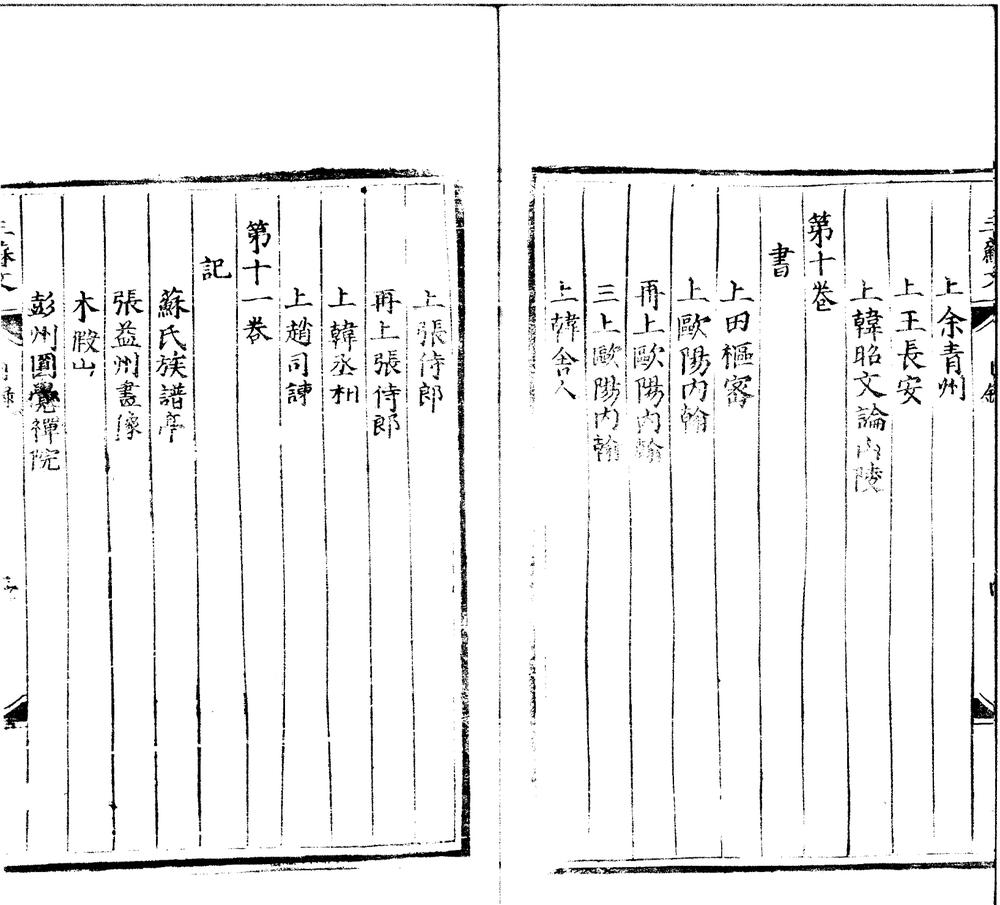 三蘇文
目錄
四
上余青州
上王長安
上韓昭文論山陵
第十卷
書
上田樞密
上歐陽內翰
再上歐陽內翰
三上歐陽內翰
上韓舍人
上張侍郎
再上張侍郎
上韓丞相
上趙司諫
第十一卷
記
蘇氏族譜亭
張益州畫像
木假山
彭州圓覺禪院
三蘇文
目錄